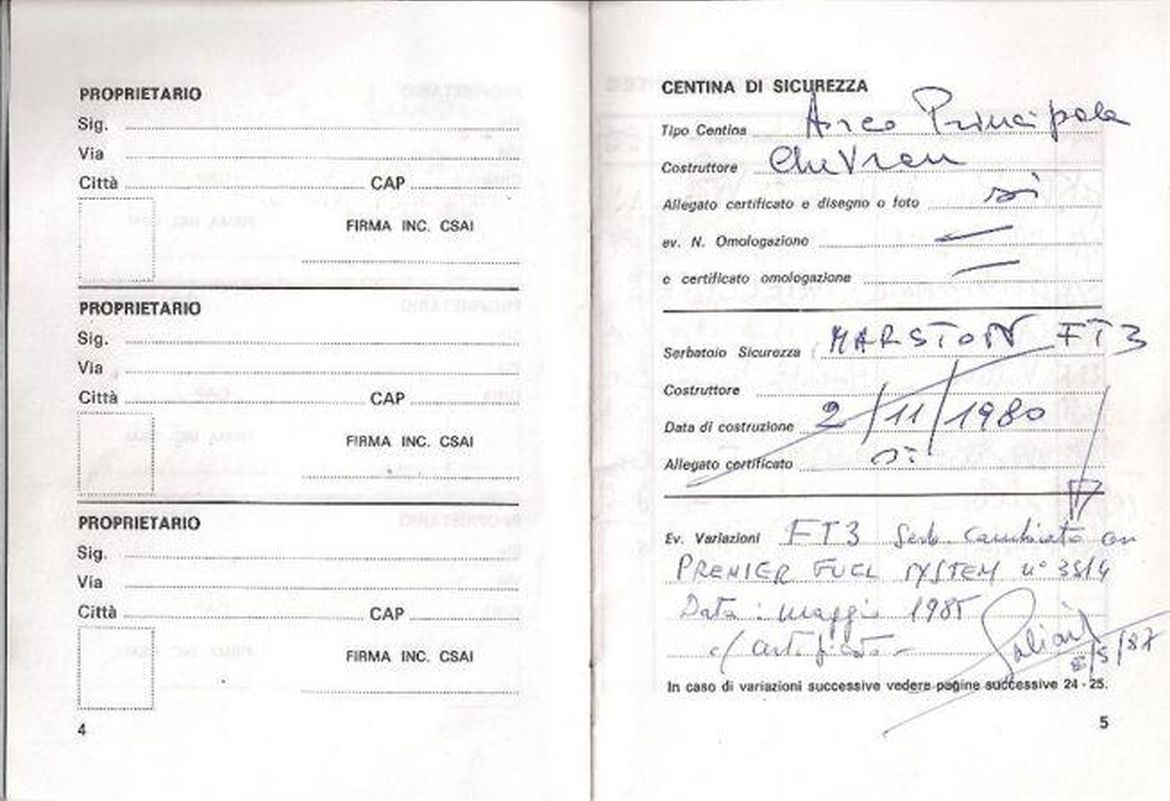 PROPRIETARIO
Sig.
Via
Città CAP
FIRMA INC. CSAI
PROPRIETARIO
Sig.
Via
Città CAP
FIRMA INC. CSAI
PROPRIETARIO
Sig.
Via
Città CAP
FIRMA INC. CSAI
4
CENTINA DI SICUREZZA
Tipo Centina Arco Principale
Costruttore Chevron
Allegato certificato e disegno o foto sì
ev. N. Omologazione —
e certificato omologazione —
Serbatoio Sicurezza MARSTON FT3
Costruttore
Data di costruzione 2/11/1980
Allegato certificato sì
Ev. Variazioni FT3 Serb. cambiato con
PREMIER FUEL SYSTEM n° 3514
Data: maggio 1985
c/ certificato -
8/5/87
In caso di variazioni successive vedere pagine successive 24-25.
5